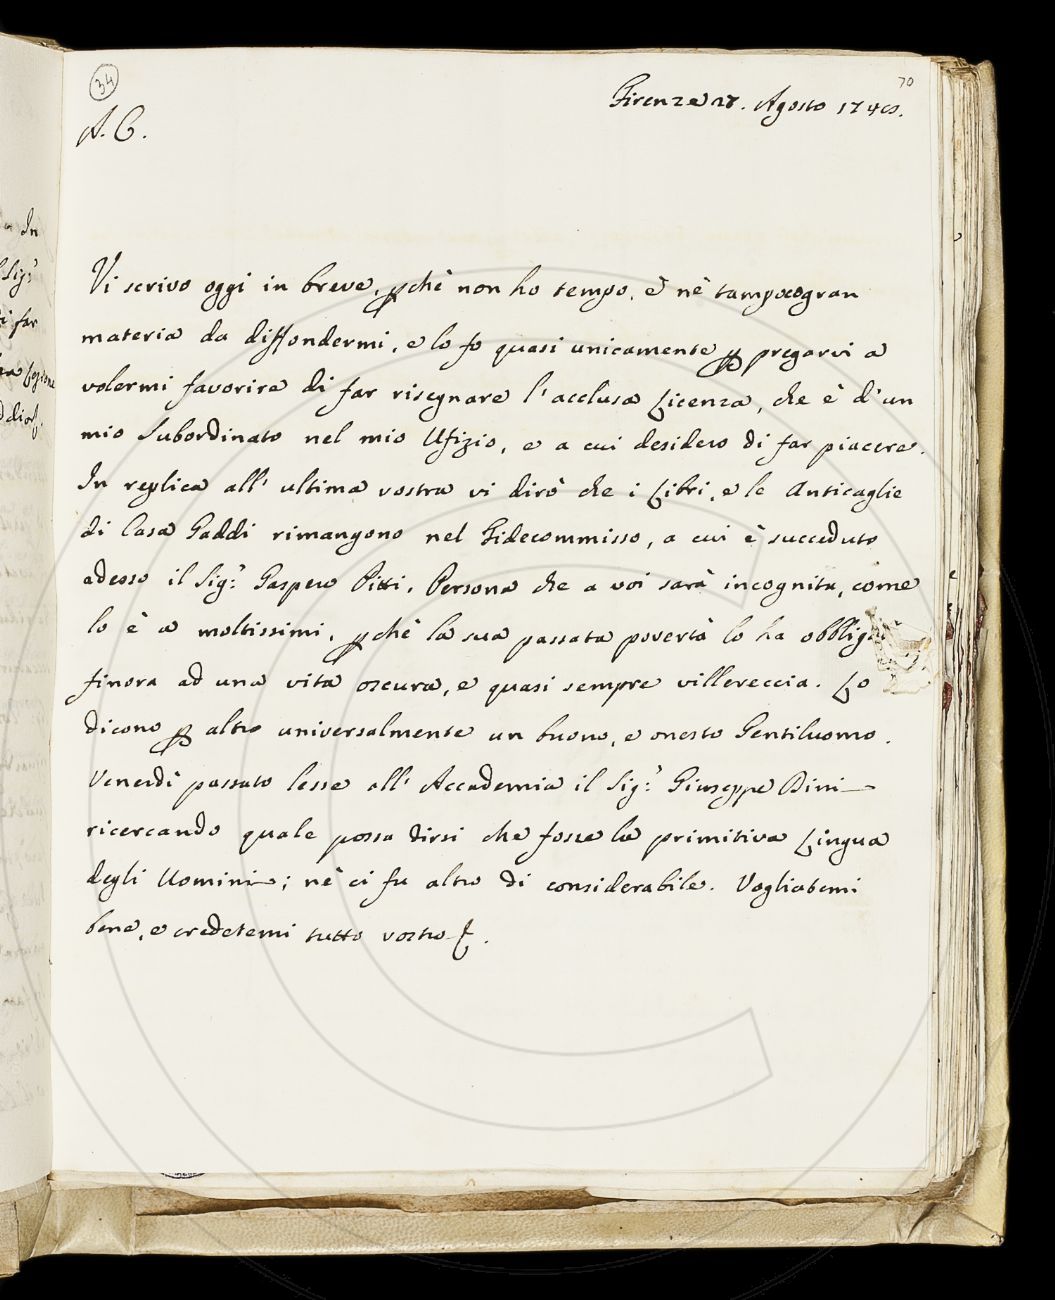 34
70
Firenze 27. Agosto 1746.
A. C.
Vi scrivo oggi in breve, pchè non ho tempo, e nè tampoco gran
materia da diffondermi, e lo fo quasi unicamente p pregarvi a
volermi favorire di far risegnare l'acclusa Licenza, che è d'un
mio Subordinato nel mio Ufizio, e a cui desidero di far piacere.
In replica all' ultima vostra vi dirò che i Libri, e le Anticaglie
di Casa Gaddi rimangono nel Fidecommisso, a cui è succeduto
adesso il Sig.r Gaspero Pitti, Persona che a voi sarà incognita, come
lo è a moltissimi, pchè la sua passata povertà lo ha
finora ad una vita oscura, e quasi sempre villereccia. Lo
dicono p altro universalmente un buono, e onesto Gentiluomo.
Venerdì passato lesse all' Accademia il Sig.r Giuseppe Bini
ricercando quale possa dirsi che fosse la primitiva Lingua
degli Uomini; nè ci fu altro di considerabile. Vogliatemi
bene, e credetemi tutto vostro